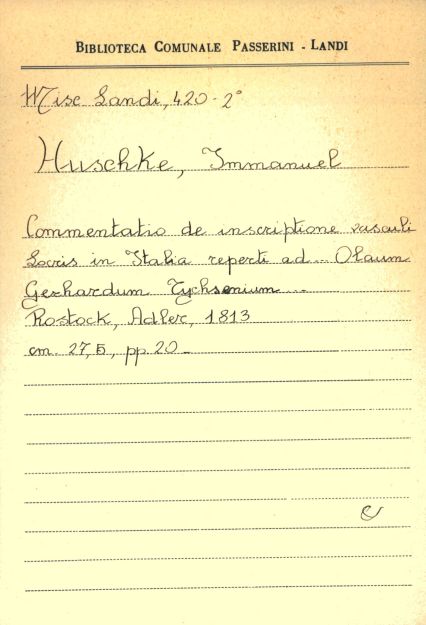 BIBLIOTECA COMUNALE PASSERINI - LANDI
Misc Landi, 420-2°
Huschke, Immanuel
Commentatio de inscriptione vasculi
Locris in Italia reperti ad... Olaum
Gerhardum Tychsenium...
Rostock, Adler, 1813
cm. 27,5, pp. 20_
e